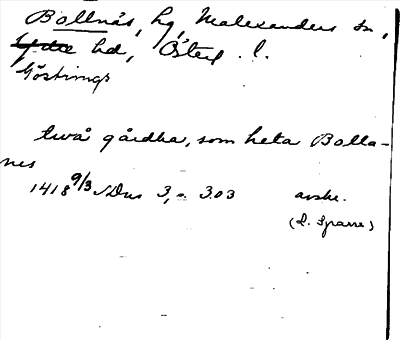 Bollnäs, hg, Malexanders sn,
Ydre hd, Österg. l.
Göstrings
twå gårdha, som heta Bolla-
nes
1418 9/3 SDns 3, s. 303 avskr.
(L. Sparre)